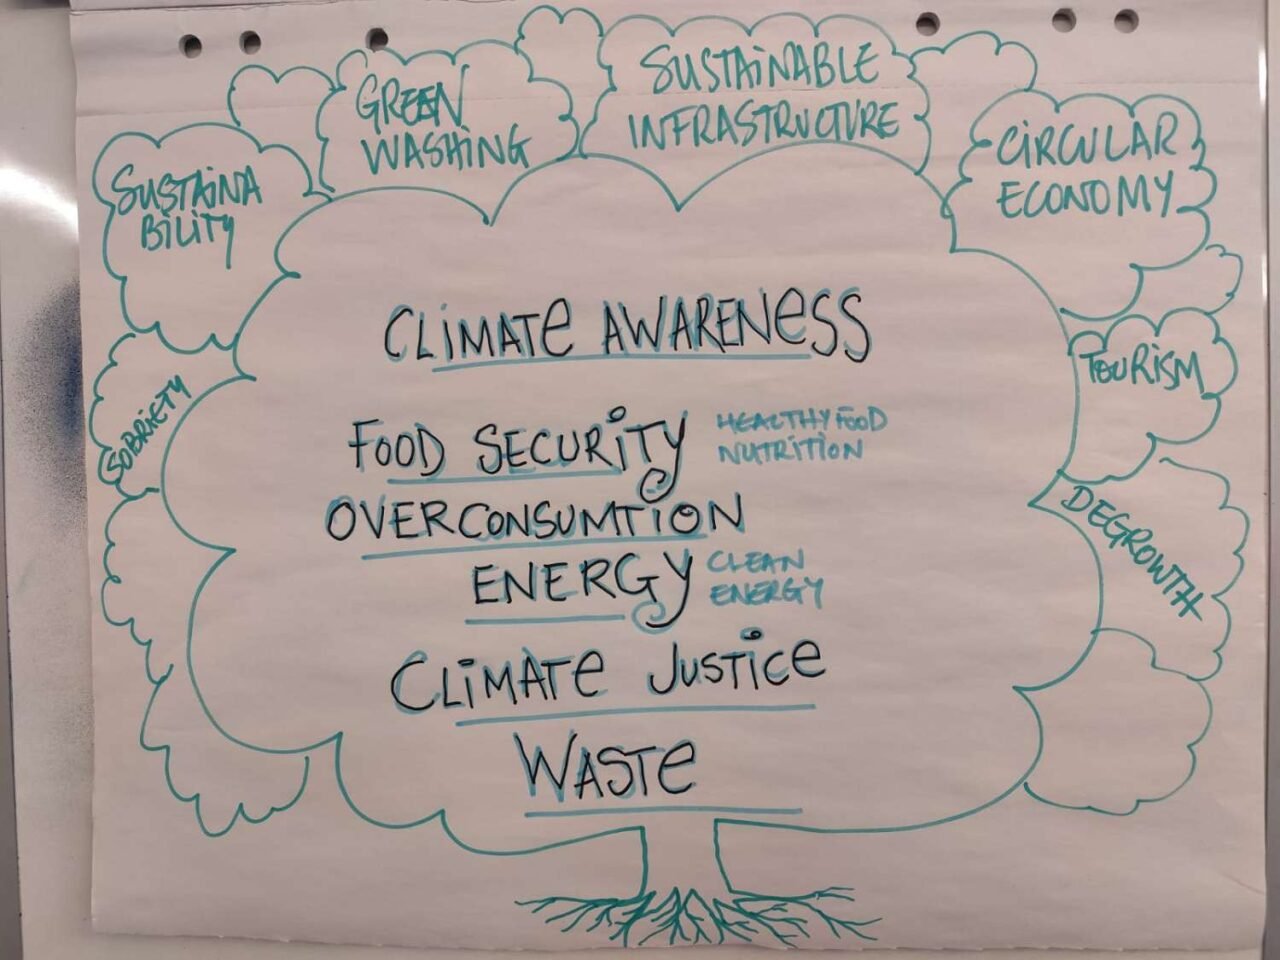 GREEN
WASHING
SUSTAINABLE
INFRASTRUCTURE
CIRCULAR
ECONOMY
SUSTAINA
BILITY
CLIMATE AWARENESS
TOURISM
SOBRIETY
FOOD SECURITY
HEALTHY FOOD
NUTRITION
OVERCONSUMTION
DEGROWTH
ENERGY
CLEAN
ENERGY
CLIMATE JUSTICE
WASTE